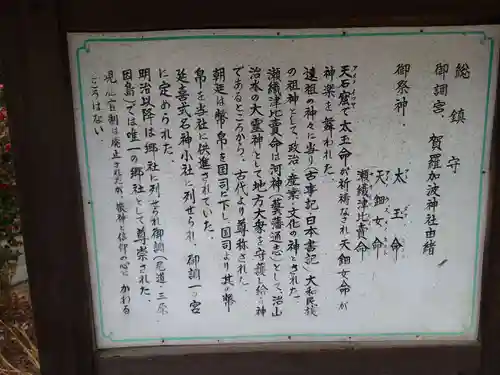 総鎮守
御調宮、賀羅加波神社由緒
御祭神. 太玉命
天細女命
瀬織津比賣命
天石窟で太玉命が祈祷なされ天細女命が
神楽を舞われた。
遠祖の神々に当り(古事記日本書記)大和民族
の祖神として、政治産業文化の神とされた。
瀬織津比賣命は河神(藝藩通志)として、治山
治水の大霊神として地方大衆を守護し給う神
であるところから、古代より尊称された。
朝廷は幣帛を国司に下し、国司より其の幣
帛を当社に供進されていた。
延喜式名神小社に列せられ、御調一の宮
に定められた。
明治以降は郷社に列せられ御調(尾道・三原・
因島)では唯一の郷社として尊崇された。
現在官制は廃止されたが、敬神と信仰の心に、かわる
ところはない。